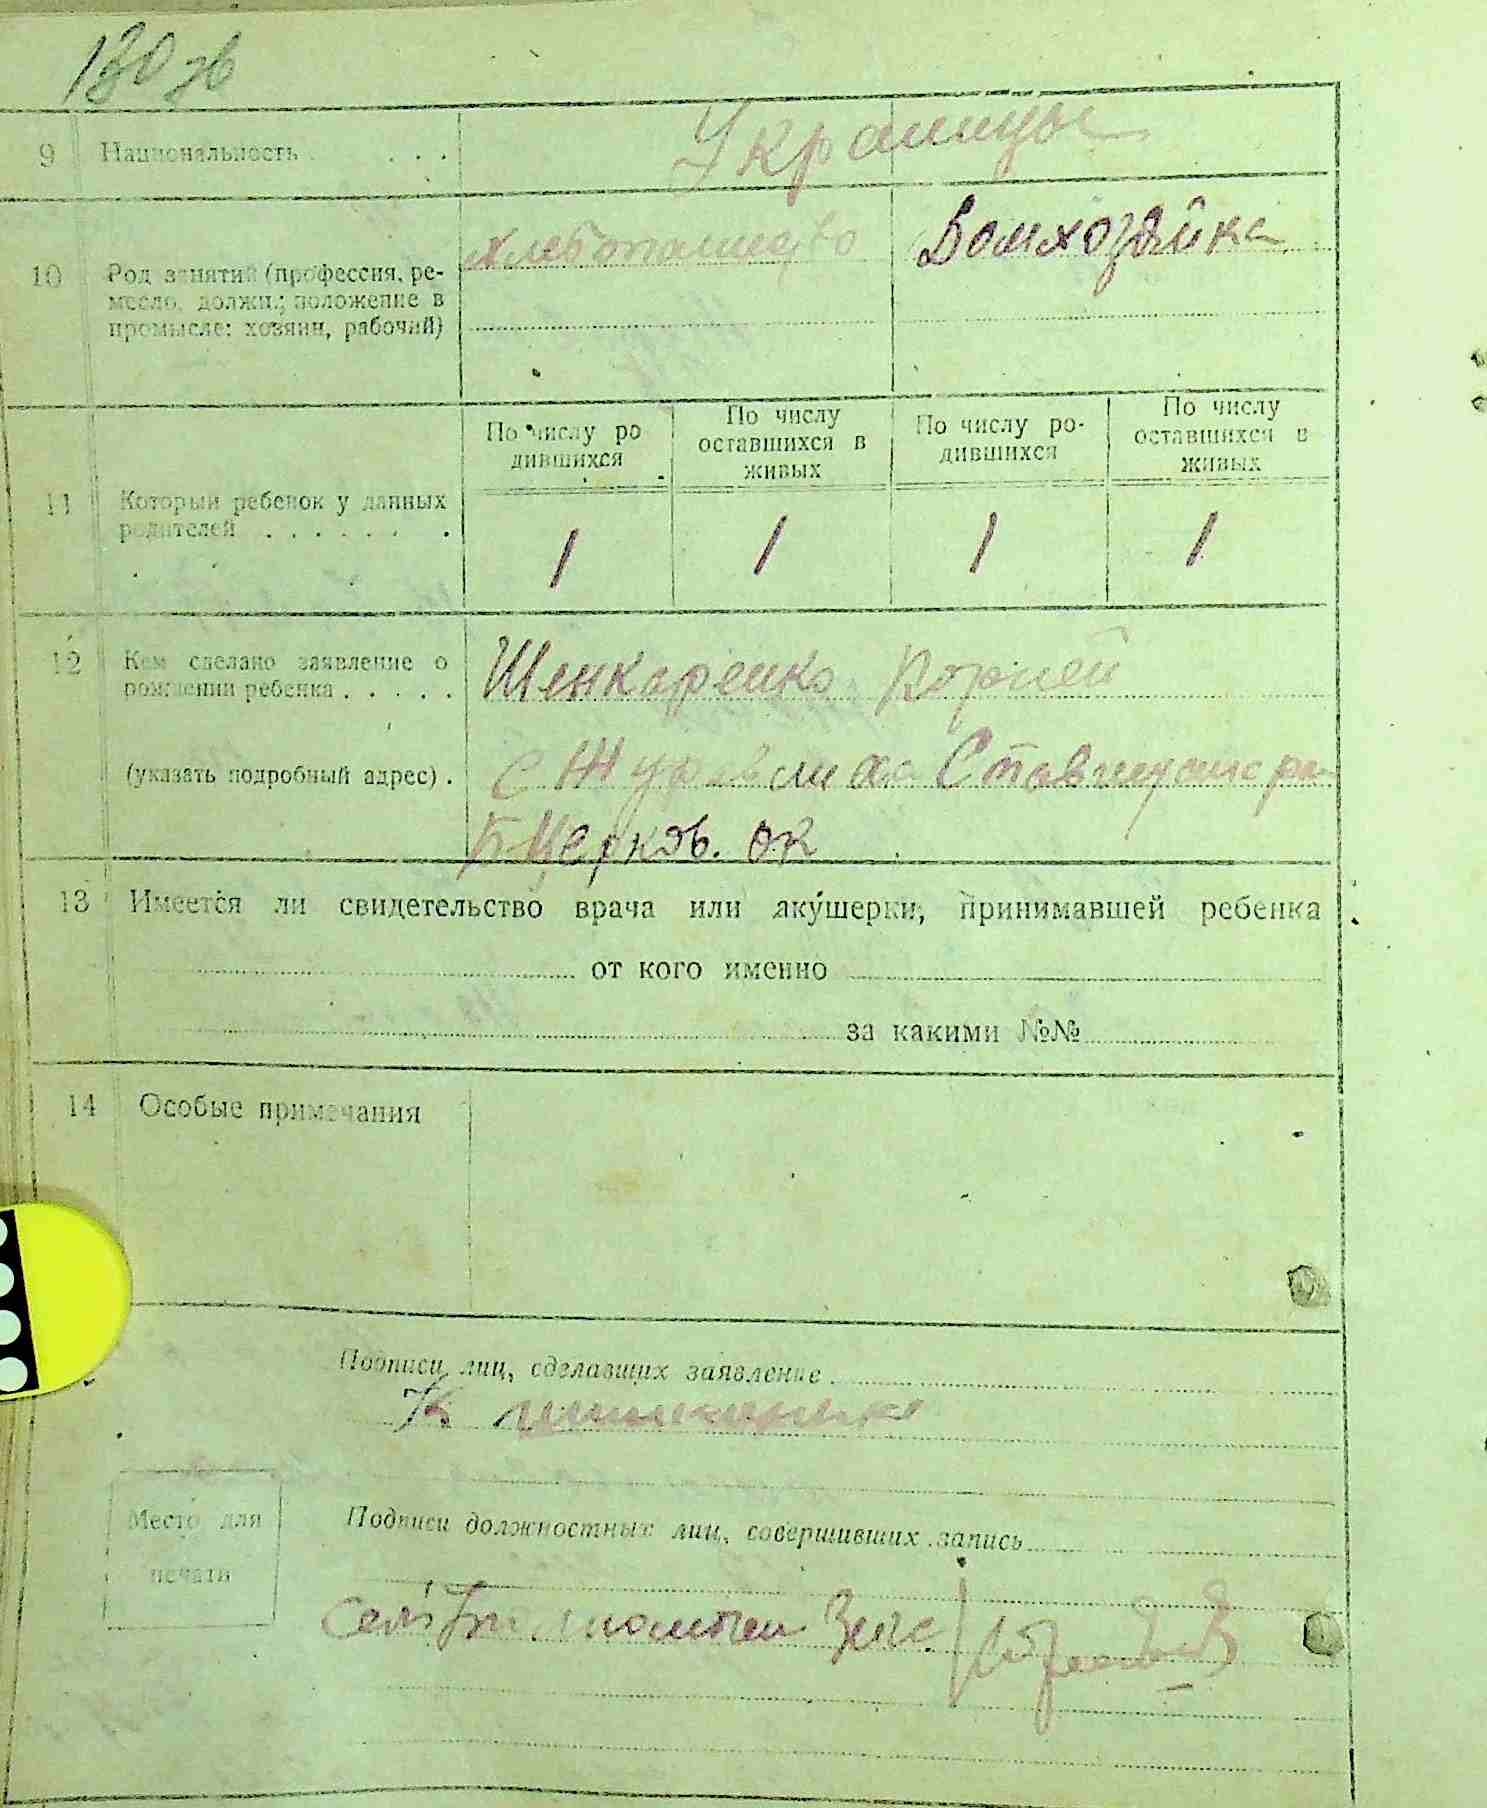 130 зв
9 Национальность . . . . Украинцы
10 Род занятий (профессия, ре-
месло, должн.; положение в
промысле: хозяин, рабочий)
хлебопашество Домхозяйка
По числу ро
дившихся
По числу
оставшихся в
живых
По числу ро-
дившихся
По числу
оставшихся в
живых
11 Который ребенок у данных
родителей . . . . . . .
1 1 1 1
12 Кем сделано заявление о
рождении ребенка . . . . .
Шенкаренко Корней
(указать подробный адрес) .
с Журавлиха Ставищанс ра
Б-Церков. ок
13 Имеется ли свидетельство врача или акушерки, принимавшей ребенка
от кого именно
за какими №№
14 Особые примечания
Подписи лиц, сделавших заявление
К
Место для
печати
Подписи должностных лиц, совершивших запись